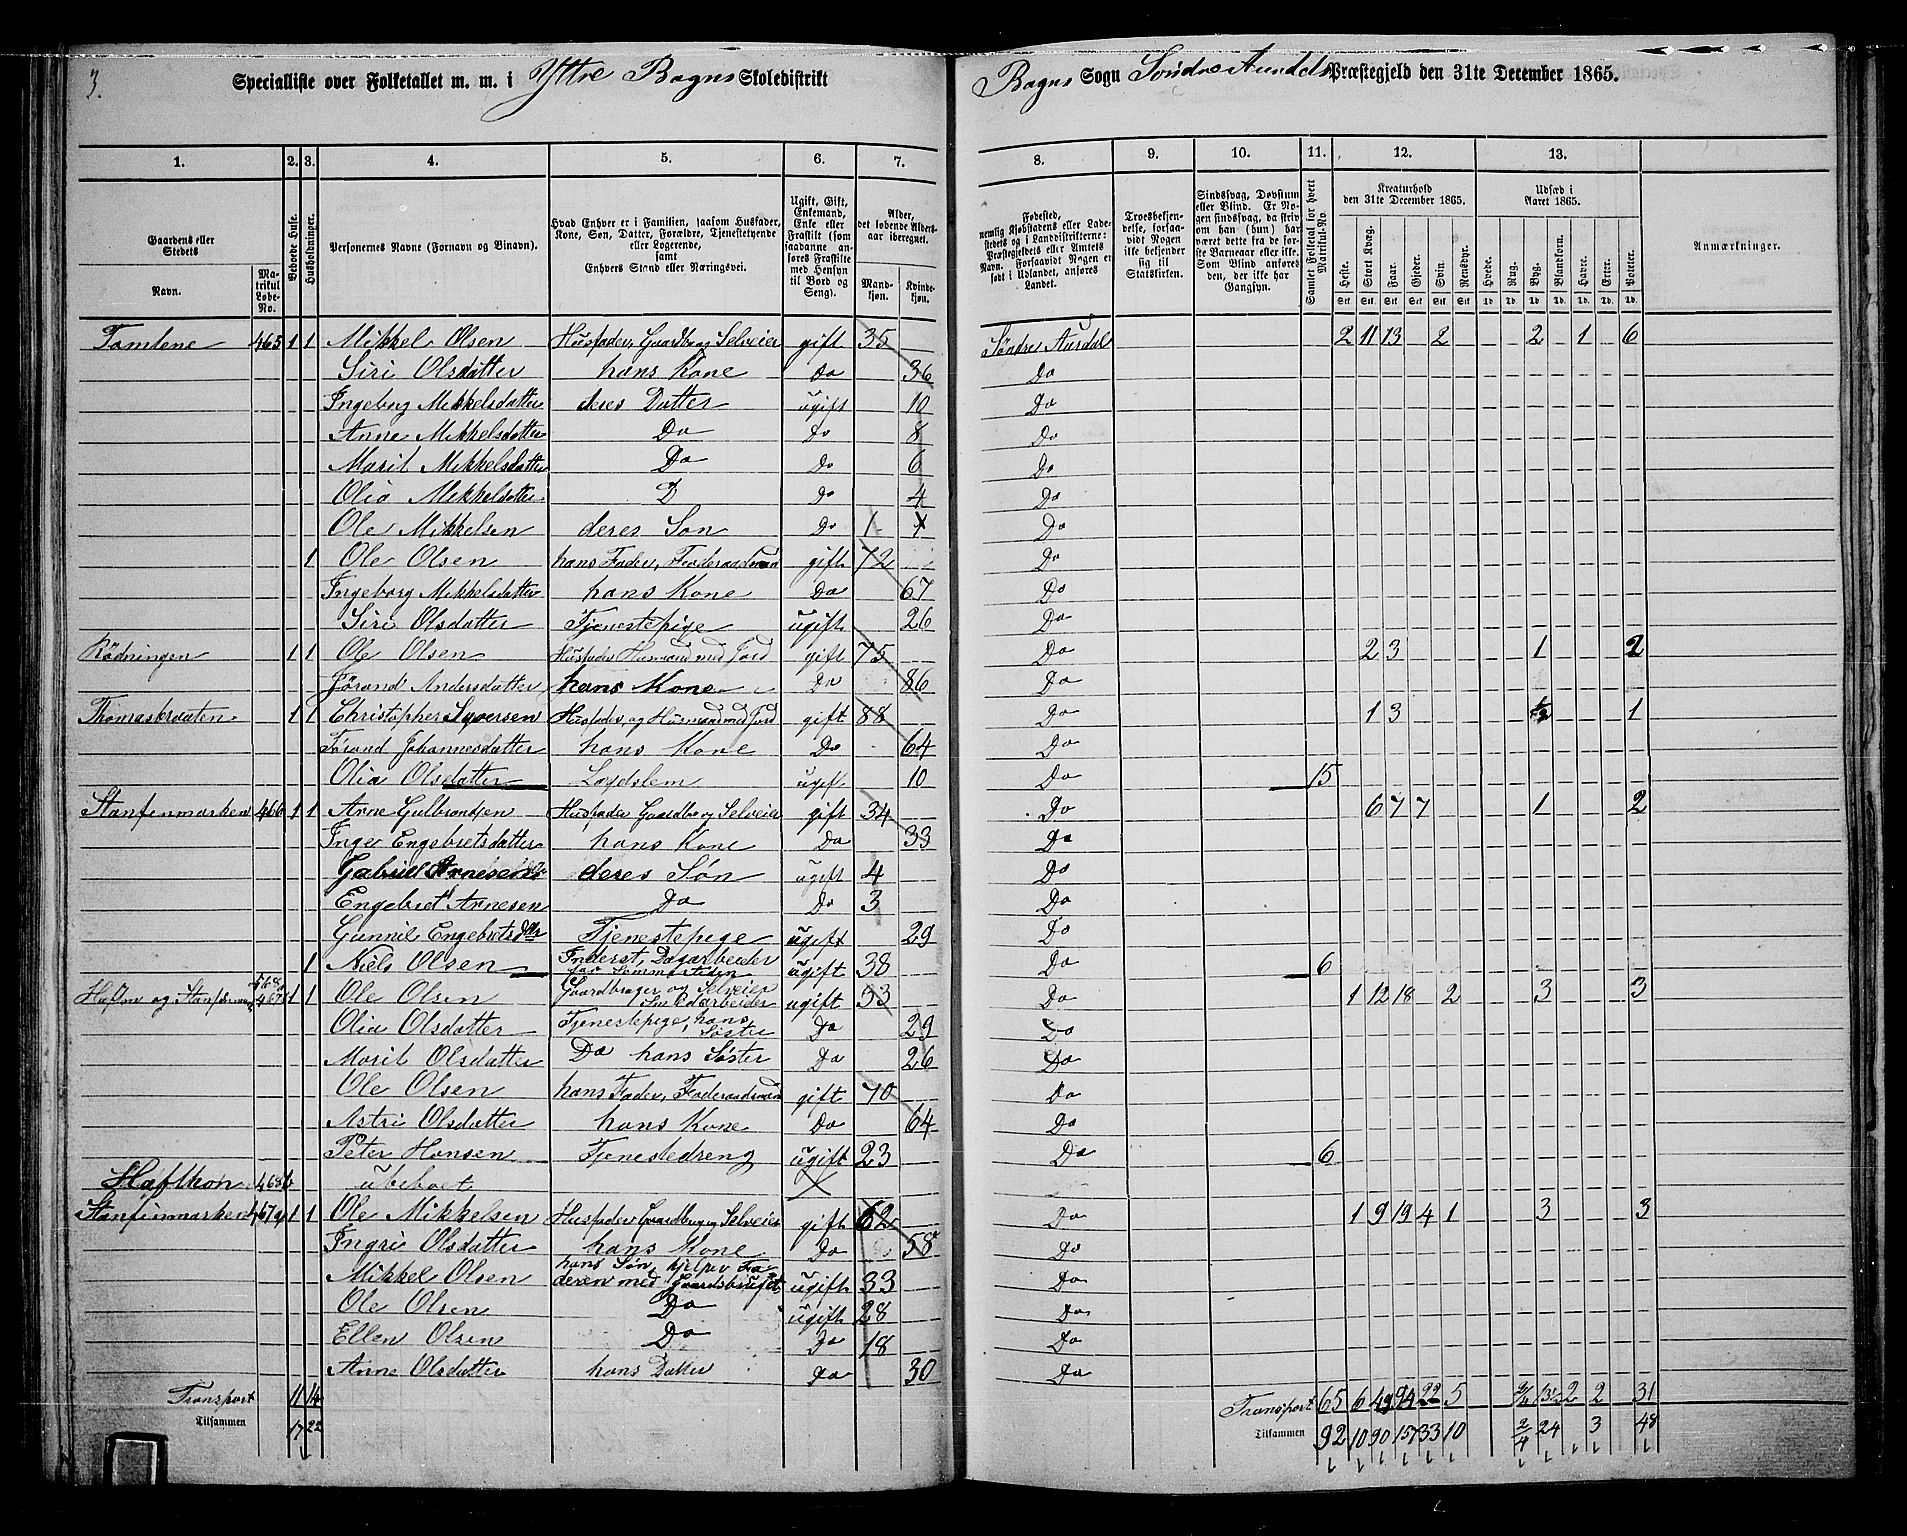 3.
Specialliste over Folketallet m. m. i Yttre Bagns Skoledistrikt
Bagns Sogn Søndre Aurdals Præstegjeld den 31te December 1865.
1. 2. 3. 4. 5. 6. 7. 8. 9. 10. 11. 12. 13.
Gaardens eller Stedets
Navn.
Matrikul Løbe-No.
Beboede Huse.
Husholdninger.
Personernes Navne (Fornavn og Binavn).
Hvad Enhver er i Familien, saasom Husfader, Kone, Søn, Datter, Forældre, Tjenestetyende eller Logerende, samt Enhvers Stand eller Næringsvei.
Ugift, Gift, Enkemand, Enke eller Fraskilt (som saadanne anføres Fraskilte med Hensyn til Bord og Seng).
Alder, det løbende Aldersaar iberegnet.
Mandkjøn. Kvindekjøn.
Fødested, nemlig Kjøbstadens eller Ladestedets og i Landdistrikterne: Præstegjeldets eller Amtets Navn. Forsaavidt Nogen er født i Udlandet, anføres Landet.
Troesbekjendelse, forsaavidt Nogen ikke bekjender sig til Statskirken.
Sindssvag, Døvstum eller Blind. Er Nogen sindssvag, da skriv om han (hun) har været dette fra første Barneaar eller ikke. Som Blind anføres den, der ikke har Gangsyn.
Samlet Folketal for hvert Matrikul-No.
Kreaturhold den 31te December 1865.
Heste. Stort Kvæg. Faar. Gjeder. Svin. Rensdyr.
Udsæd i Aaret 1865.
Hvede. Rug. Byg. Blandkorn. Havre. Erter. Poteter.
Anmærkninger.
Tomlene 465 1 1 Mikkel Olsen Husfader, Gaardbr. og Selveier gift 35 Søndre Aurdal 2 11 13 2 2 1 6
Siri Olsdatter hans Kone Do 36 Do
Ingeborg Mikkelsdatter deres Datter ugift 10 Do
Anne Mikkelsdatter Do Do 8 Do
Marit Mikkelsdatter Do Do 6 Do
Olia Mikkelsdatter D Do 4 Do
Ole Mikkelsen deres Søn Do 1 Do
1 Ole Olsen hans Fader, Føderaadsmand gift 72 Do
Ingeborg Mikkelsdatter hans Kone Do 67 Do
Siri Olsdatter Tjenestepige ugift 26 Do
Rødningen 1 1 Ole Olsen Husfader Husmand med Jord gift 75 Do 2 3 1 2
Jørand Andersdatter hans Kone Do 86 Do
Thomasbraaten 1 1 Christopher Syversen Husfader og Husmand med Jord gift 88 Do 1 3 1/2 1
Jørand Johannesdatter hans Kone Do 64 Do
Olia Olsdatter Lægdslem ugift 10 Do 15
Stanfinmarken 466 1 1 Arne Gulbrandsen Husfader Gaardbr og Selveier gift 34 Do 6 7 7 1 2
Inger Engebretsdatter hans Kone Do 33 Do
Gabriel Arnesen deres Søn ugift 4 Do
Engebret Arnesen Do Do 3 Do
Gunnil Engebretsdtr Tjenestepige ugift 29 Do
1 Niels Olsen Inderst, Dagarbeider for Sommertiden ugift 38 Do 6
467 1 1 Ole Olsen Gaardbruger og Selveier Smedarbeider ugift 33 Do 1 12 18 2 3 3
Olia Olsdatter Tjenestepige, hans Søster Do 29 Do
Marit Olsdatter Do hans Søster Do 26 Do
Ole Olsen hans Fader, Føderaadsmand gift 70 Do
Astri Olsdatter hans Kone Do 64 Do
Peter Hansen Tjenestedreng ugift 23 Do 6
Hafthon 468b ubeboet
Stanfinmarken 467a 1 1 Ole Mikkelsen Husfader Gaardbr og Selveier gift 62 Do 1 9 19 4 1 3 3
Ingri Olsdatter hans Kone Do 58 Do
Mikkel Olsen hans Søn, hjelper Faderen med Gaardsbruget ugift 33 Do
Ole Olsen Do ugift 28 Do
Ellen Olsen Do Do 18 Do
Anne Olsdatter hans Datter Do 30 Do
Transport 11 14 Transport 65 6 49 94 22 5 2/4 13½ 2 2 31
Tilsammen 17 22 Tilsammen 92 10 90 157 33 10 2/4 24 3 48